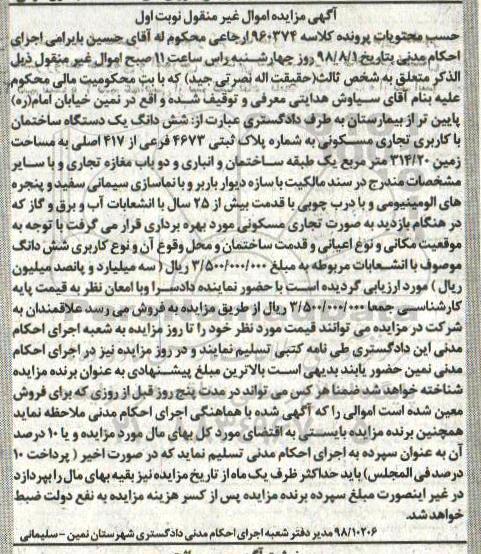 آگهی مزایده اموال غیر منقول نوبت اول
حسب محتویات پرونده کلاسه ۹۶۰۳۷۴ ارجاعی محکوم له آقای حسین بایرامی اجرای
احکام مدنی بتاریخ ۹۸/۸/۱ روز چهارشنبه راس ساعت ۱۱ صبح اموال غیر منقول ذیل
الذکر متعلق به شخص ثالث (حقیقت اله نصرتی جید) که با بت محکومیت مالی محکوم
علیه بنام آقای سیاوش هدایتی معرفی و توقیف شده و اقع در نمین خیابان امام(ره)
پایین تر از بیمارستان به طرف دادگستری عبارت از: شش دانگ یک دستگاه ساختمان
با کاربری تجاری مسکونی به شماره پلاک ثبتی ۴۶۷۳ فرعی از ۴۱۷ اصلی به مساحت
زمین ۳۱۴/۲۰ متر مربع یک طبقه ساختمان و انباری و دو باب مغازه تجاری و با سایر
مشخصات مندرج در سند مالکیت با سازه دیوار باربر و با نماسازی سیمانی سفید و پنجره
های الومینیومی و با درب چوبی با قدمت بیش از ۲۵ سال با انشعابات آب و برق و گاز که
در هنگام بازدید به صورت تجاری مسکونی مورد بهره برداری قرار می گرفت با توجه به
موقعیت مکانی و نوع اعیانی و قدمت ساختمان و محل وقوع آن و نوع کاربری شش دانگ
موصوف با انشعابات مربوطه به مبلغ ۳/۵۰۰/۰۰۰/۰۰۰ ریال ( سه میلیارد و پانصد میلیون
ریال ) مورد ارزیابی گردیده است با حضور نماینده دادسرا وبا امعان نظر به قیمت پایه
کارشناسی جمعا ۳/۵۰۰/۰۰۰/۰۰۰ ریال از طریق مزایده به فروش می رسد علاقمندان به
شرکت در مزایده می توانند قیمت مورد نظر خود را تا روز مزایده به شعبه اجرای احکام
مدنی این دادگستری طی نامه کتبی تسلیم نمایند و در روز مزایده نیز در اجرای احکام
مدنی نمین حضور یابند بدیهی است بالاترین مبلغ پیشنهادی به عنوان برنده مزایده
شناخته خواهد شد ضمنا هر کس می تواند در مدت پنج روز قبل از روزی که برای فروش
معین شده است اموالی را که آگهی شده با هماهنگی اجرای احکام مدنی ملاحظه نماید
همچنین برنده مزایده بایستی به اقتضای مورد کل بهای مال مورد مزایده و یا ۱۰ درصد
آن به عنوان سپرده به اجرای احکام مدنی تسلیم نماید که در صورت اخیر ( پرداخت ۱۰
درصد فی المجلس) باید حداکثر ظرف یک ماه از تاریخ مزایده نیز بقیه بهای مال را بپردازد
در غیر اینصورت مبلغ سپرده برنده مزایده پس از کسر هزینه مزایده به نفع دولت ضبط
خواهد شد.
۹۸/۱۰۲۰۶ مدیر دفتر شعبه اجرای احکام مدنی دادگستری شهرستان نمین - سلیمانی